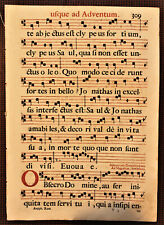 usque ad Adventum. 309
te abjectus est clypeus fortium,
clypeus Saul, quasi non esset un-
ctus oleo. Quomodo ceciderunt
fortes in bello? Jonathas in excel-
sis interfectus est Saul & Jonathas
amabiles, & decori val de in vita
sua, in morte quoque non sunt
divisi. Evovae.
Obsecro Domine, aufer ini-
quitatem servi tui, quia insipien-